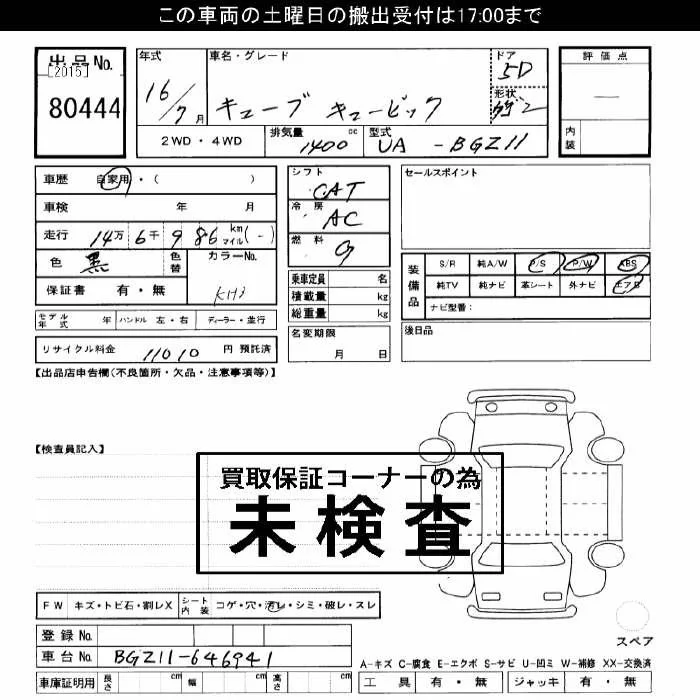 この車両の土曜日の搬出受付は17:00まで
出品No.
[2015]
80444
年式
16/7月
車名・グレード
キューブ キュービック
ドア
5D
形状
評価点
—
内装
2WD・4WD
排気量
1400 cc
型式
UA - BGZ11
車歴 自家用・( )
車検 年 月
走行 14万 6千 9 86 km マイル (-)
色 黒
色替
カラーNo.
KH3
保証書 有・無
モデル年式 年 ハンドル 左・右 ディーラー・並行
リサイクル料金 11010 円 預託済
シフト
CAT
冷房
AC
燃料
G
乗車定員 名
積載量 kg
総重量 kg
名変期限
月 日
セールスポイント
装備品
S/R 純A/W P/S P/W ABS
純TV 純ナビ 革シート 外ナビ エアB
ナビ型番:
後日品
【出品店申告欄(不良箇所・欠品・注意事項等)】
【検査員記入】
買取保証コーナーの為
未検査
FW キズ・トビ石・割レX
シート内装 コゲ・穴・汚レ・シミ・破レ・スレ
登録No.
車台No. BGZ11-646941
車庫証明用 長さ cm 幅 cm 高さ cm
スペア
A-キズ C-腐食 E-エクボ S-サビ U-凹ミ W-補修 XX-交換済
工具 有・無 ジャッキ 有・無